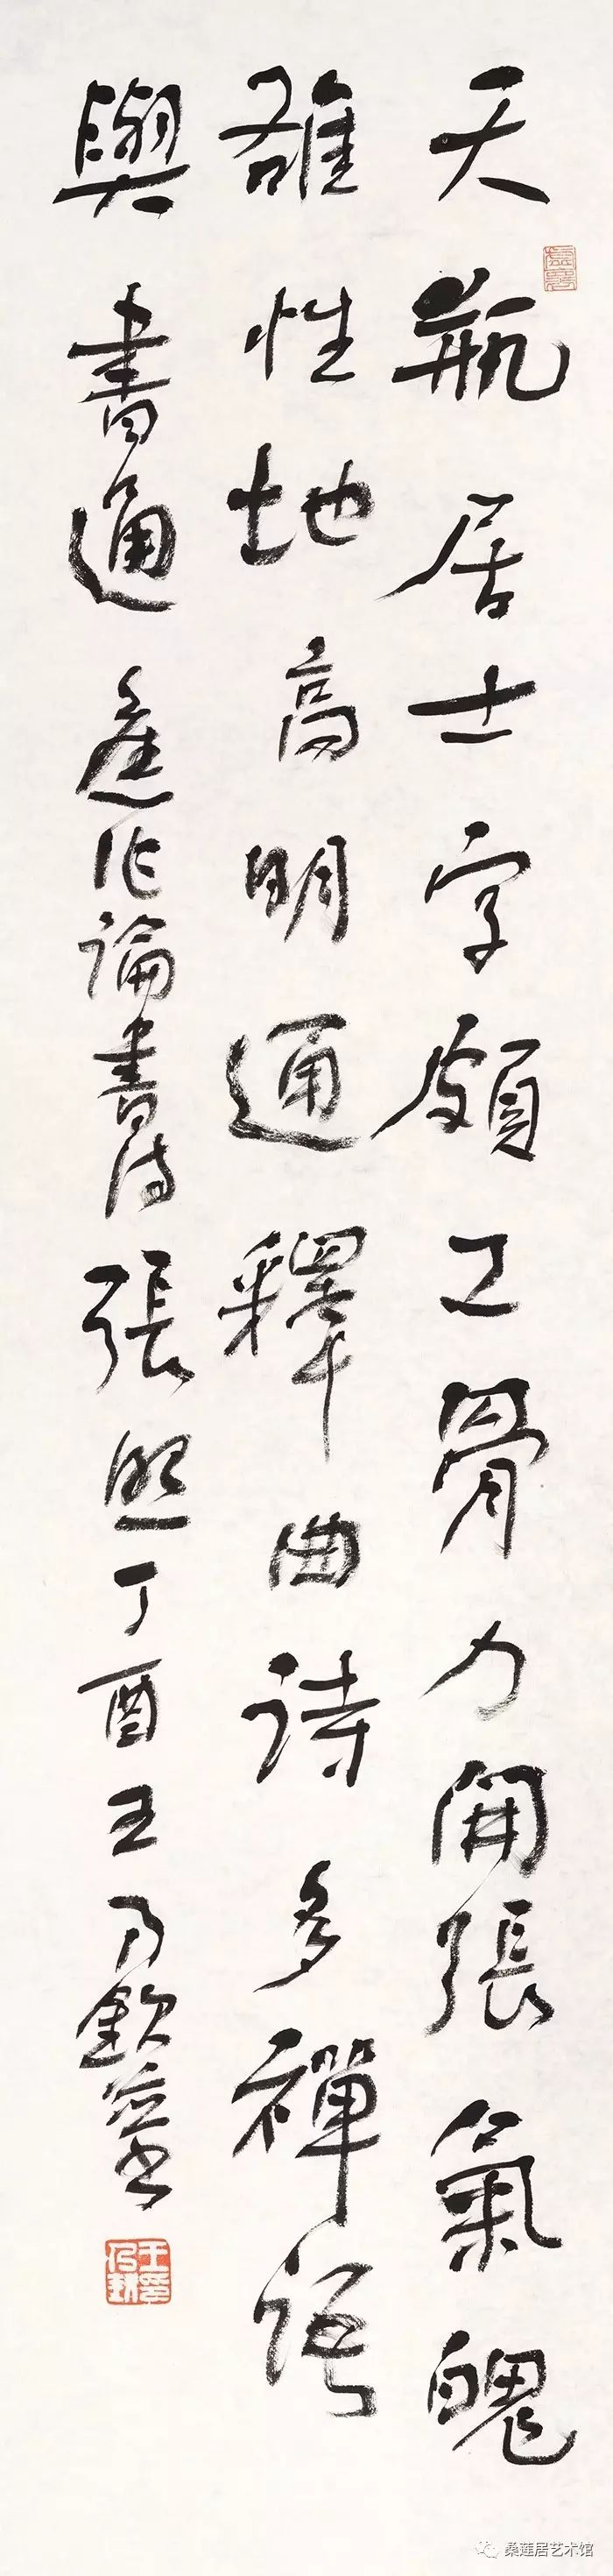 天瓶居士字頗工骨力開張氣魄
雄性地高明通釋典詩多禪語
與書通 作論書詩張照丁酉王乃欽
王乃欽印
桑莲居艺术馆